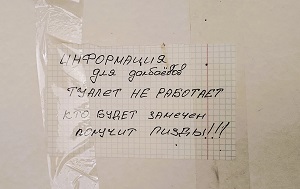 ИНФОРМАЦИЯ
для долбаёбов
ТУАЛЕТ НЕ РАБОТАЕТ
КТО БУДЕТ ЗАМЕЧЕН
ПОЛУЧИТ ПИЗДЫ!!!